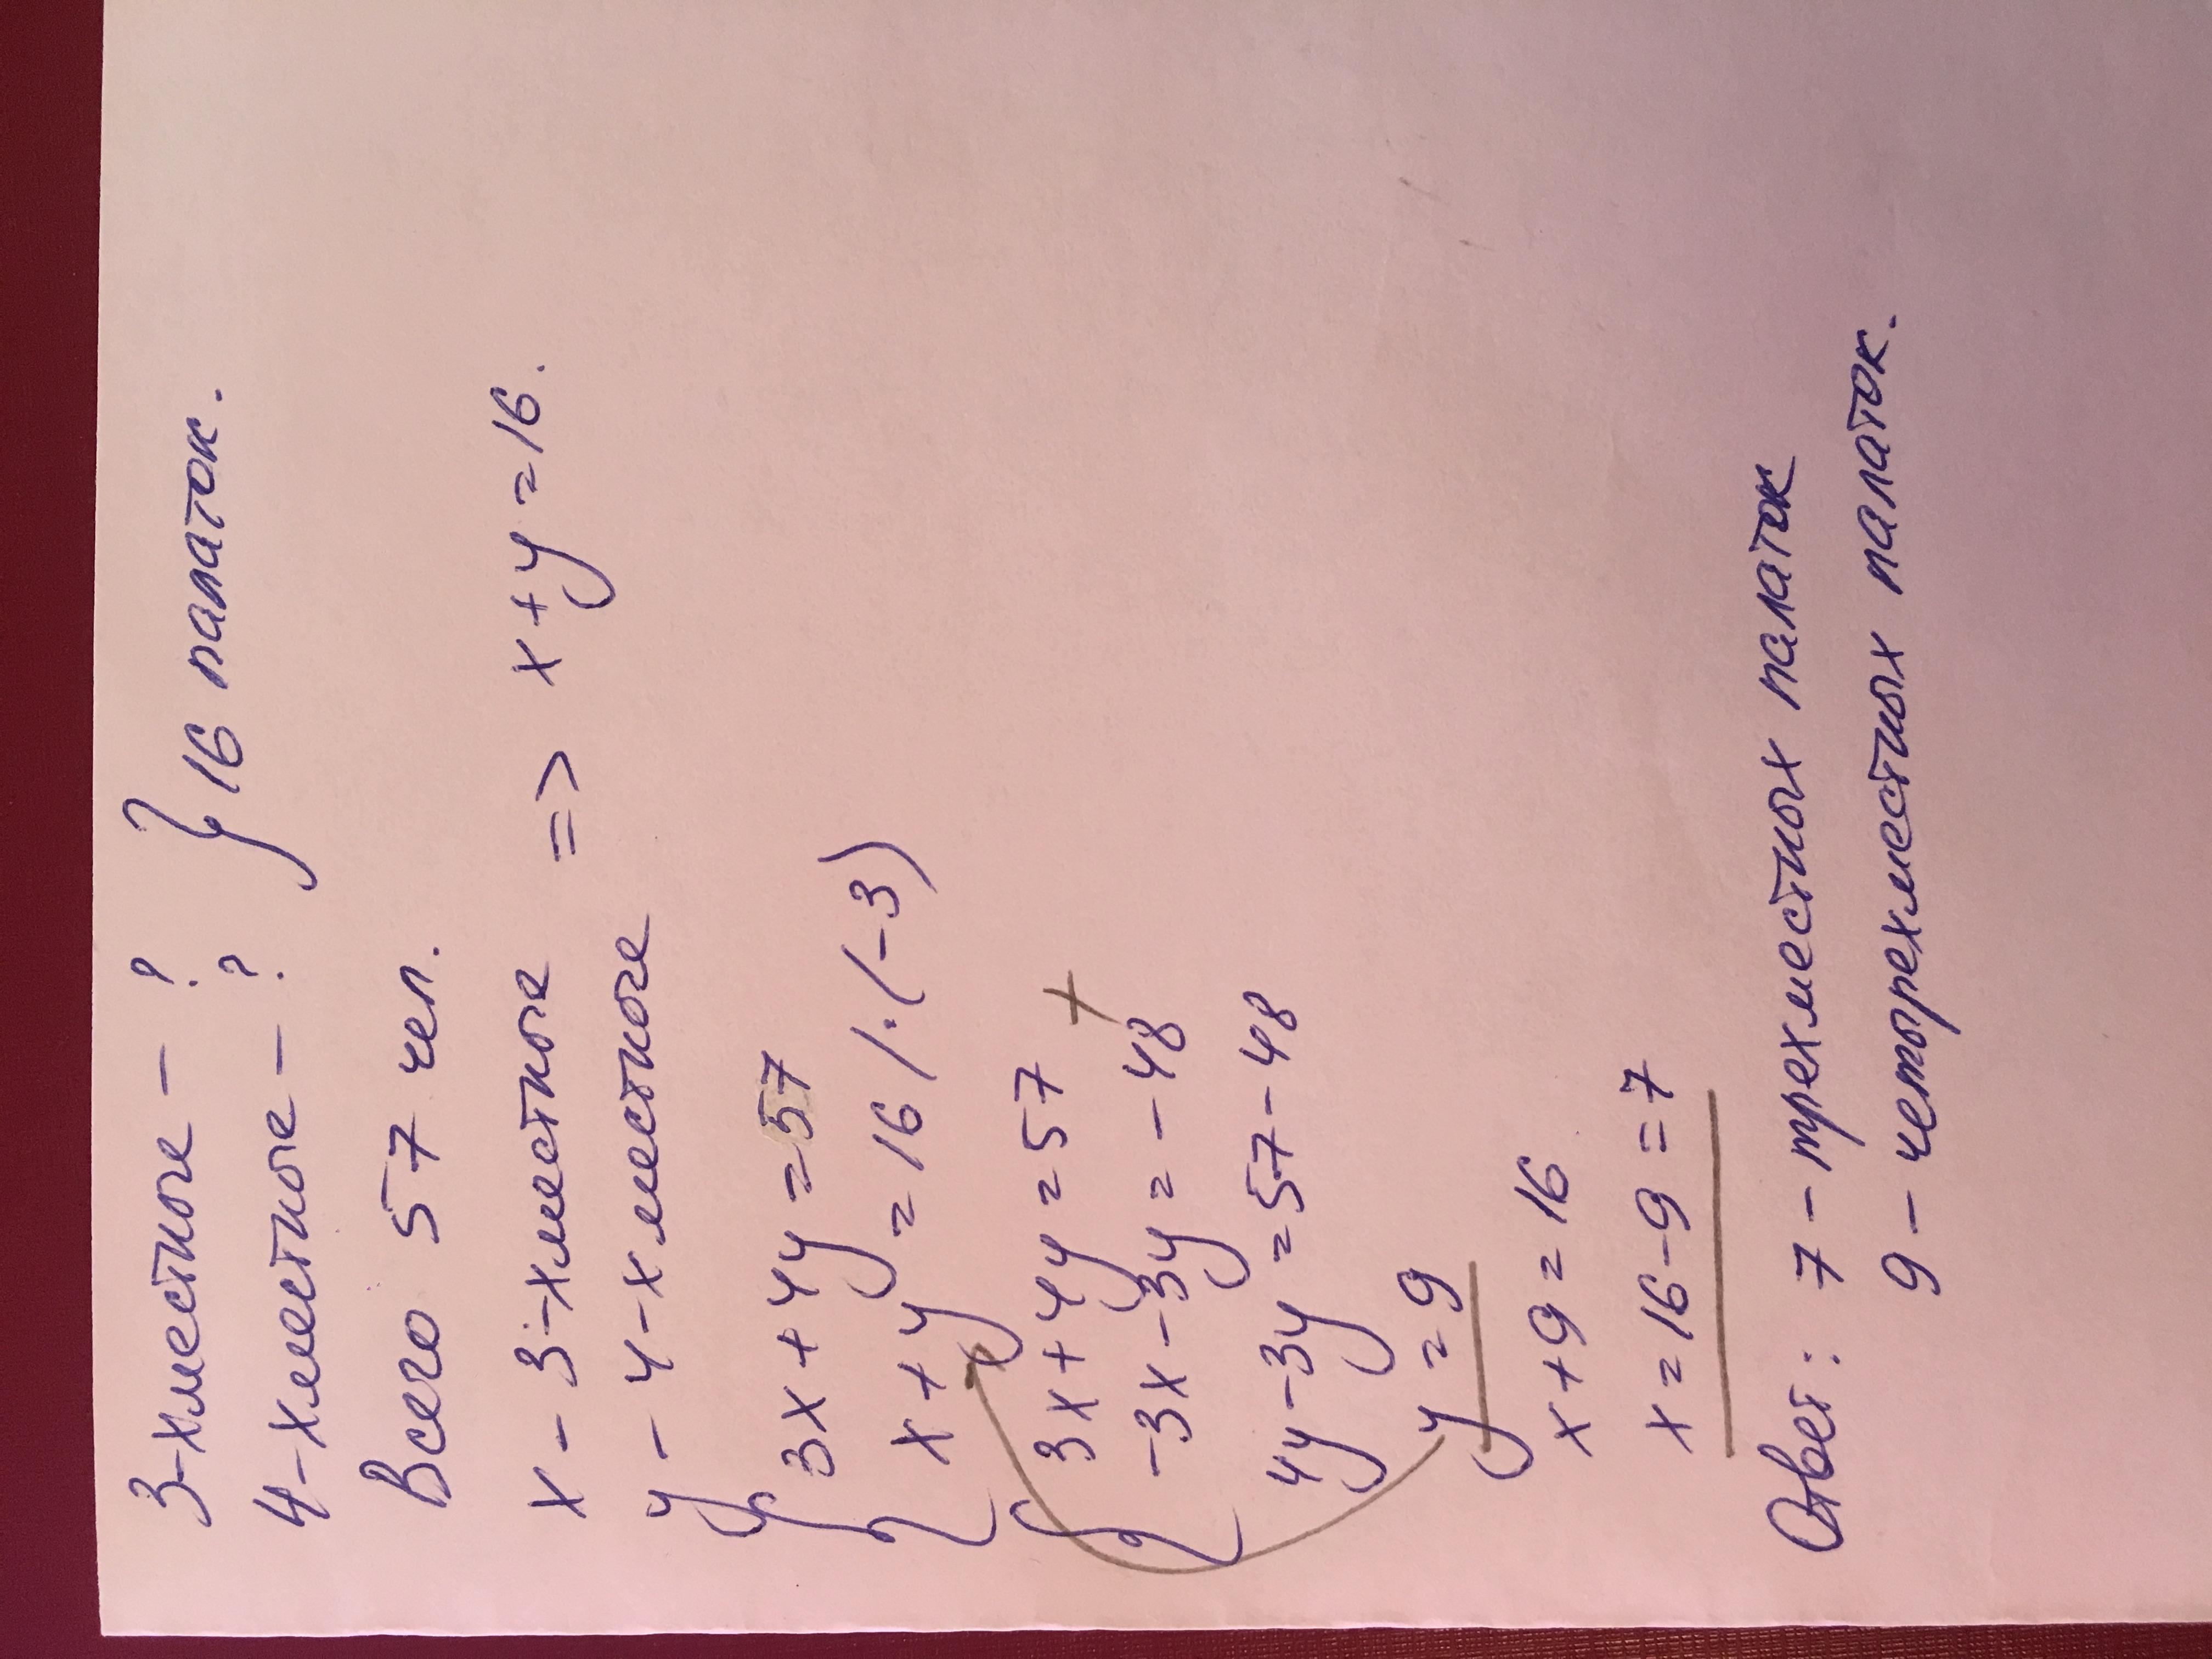 3-хместные - ?
4-хместные - ? } 16 палаток.
Всего 57 чел.
x - 3-хместные => x+y=16.
y - 4-хместные
{ 3x+4y=57
x+y=16 /·(-3)
{ 3x+4y=57
-3x-3y=-48 +
4y-3y=57-48
y=9
x+9=16
x=16-9=7
Ответ: 7 - трехместных палаток
9 - четырехместных палаток.